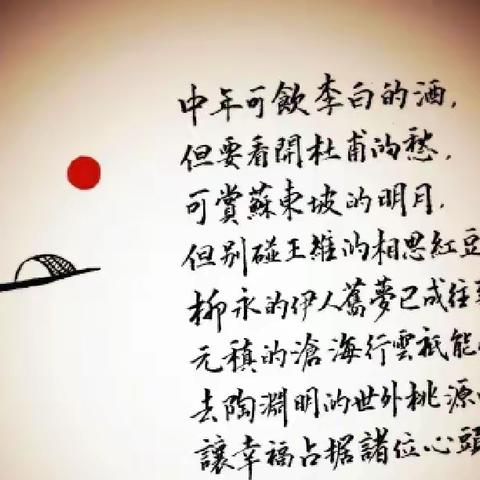 中年可飲李白的酒,
但要看開杜甫的愁,
可賞蘇東坡的明月,
但别碰王維的相思紅豆
柳永的伊人舊夢已成往
元稹的滄海行雲祇能
去陶淵明的世外桃源
讓幸福占据諸位心頭